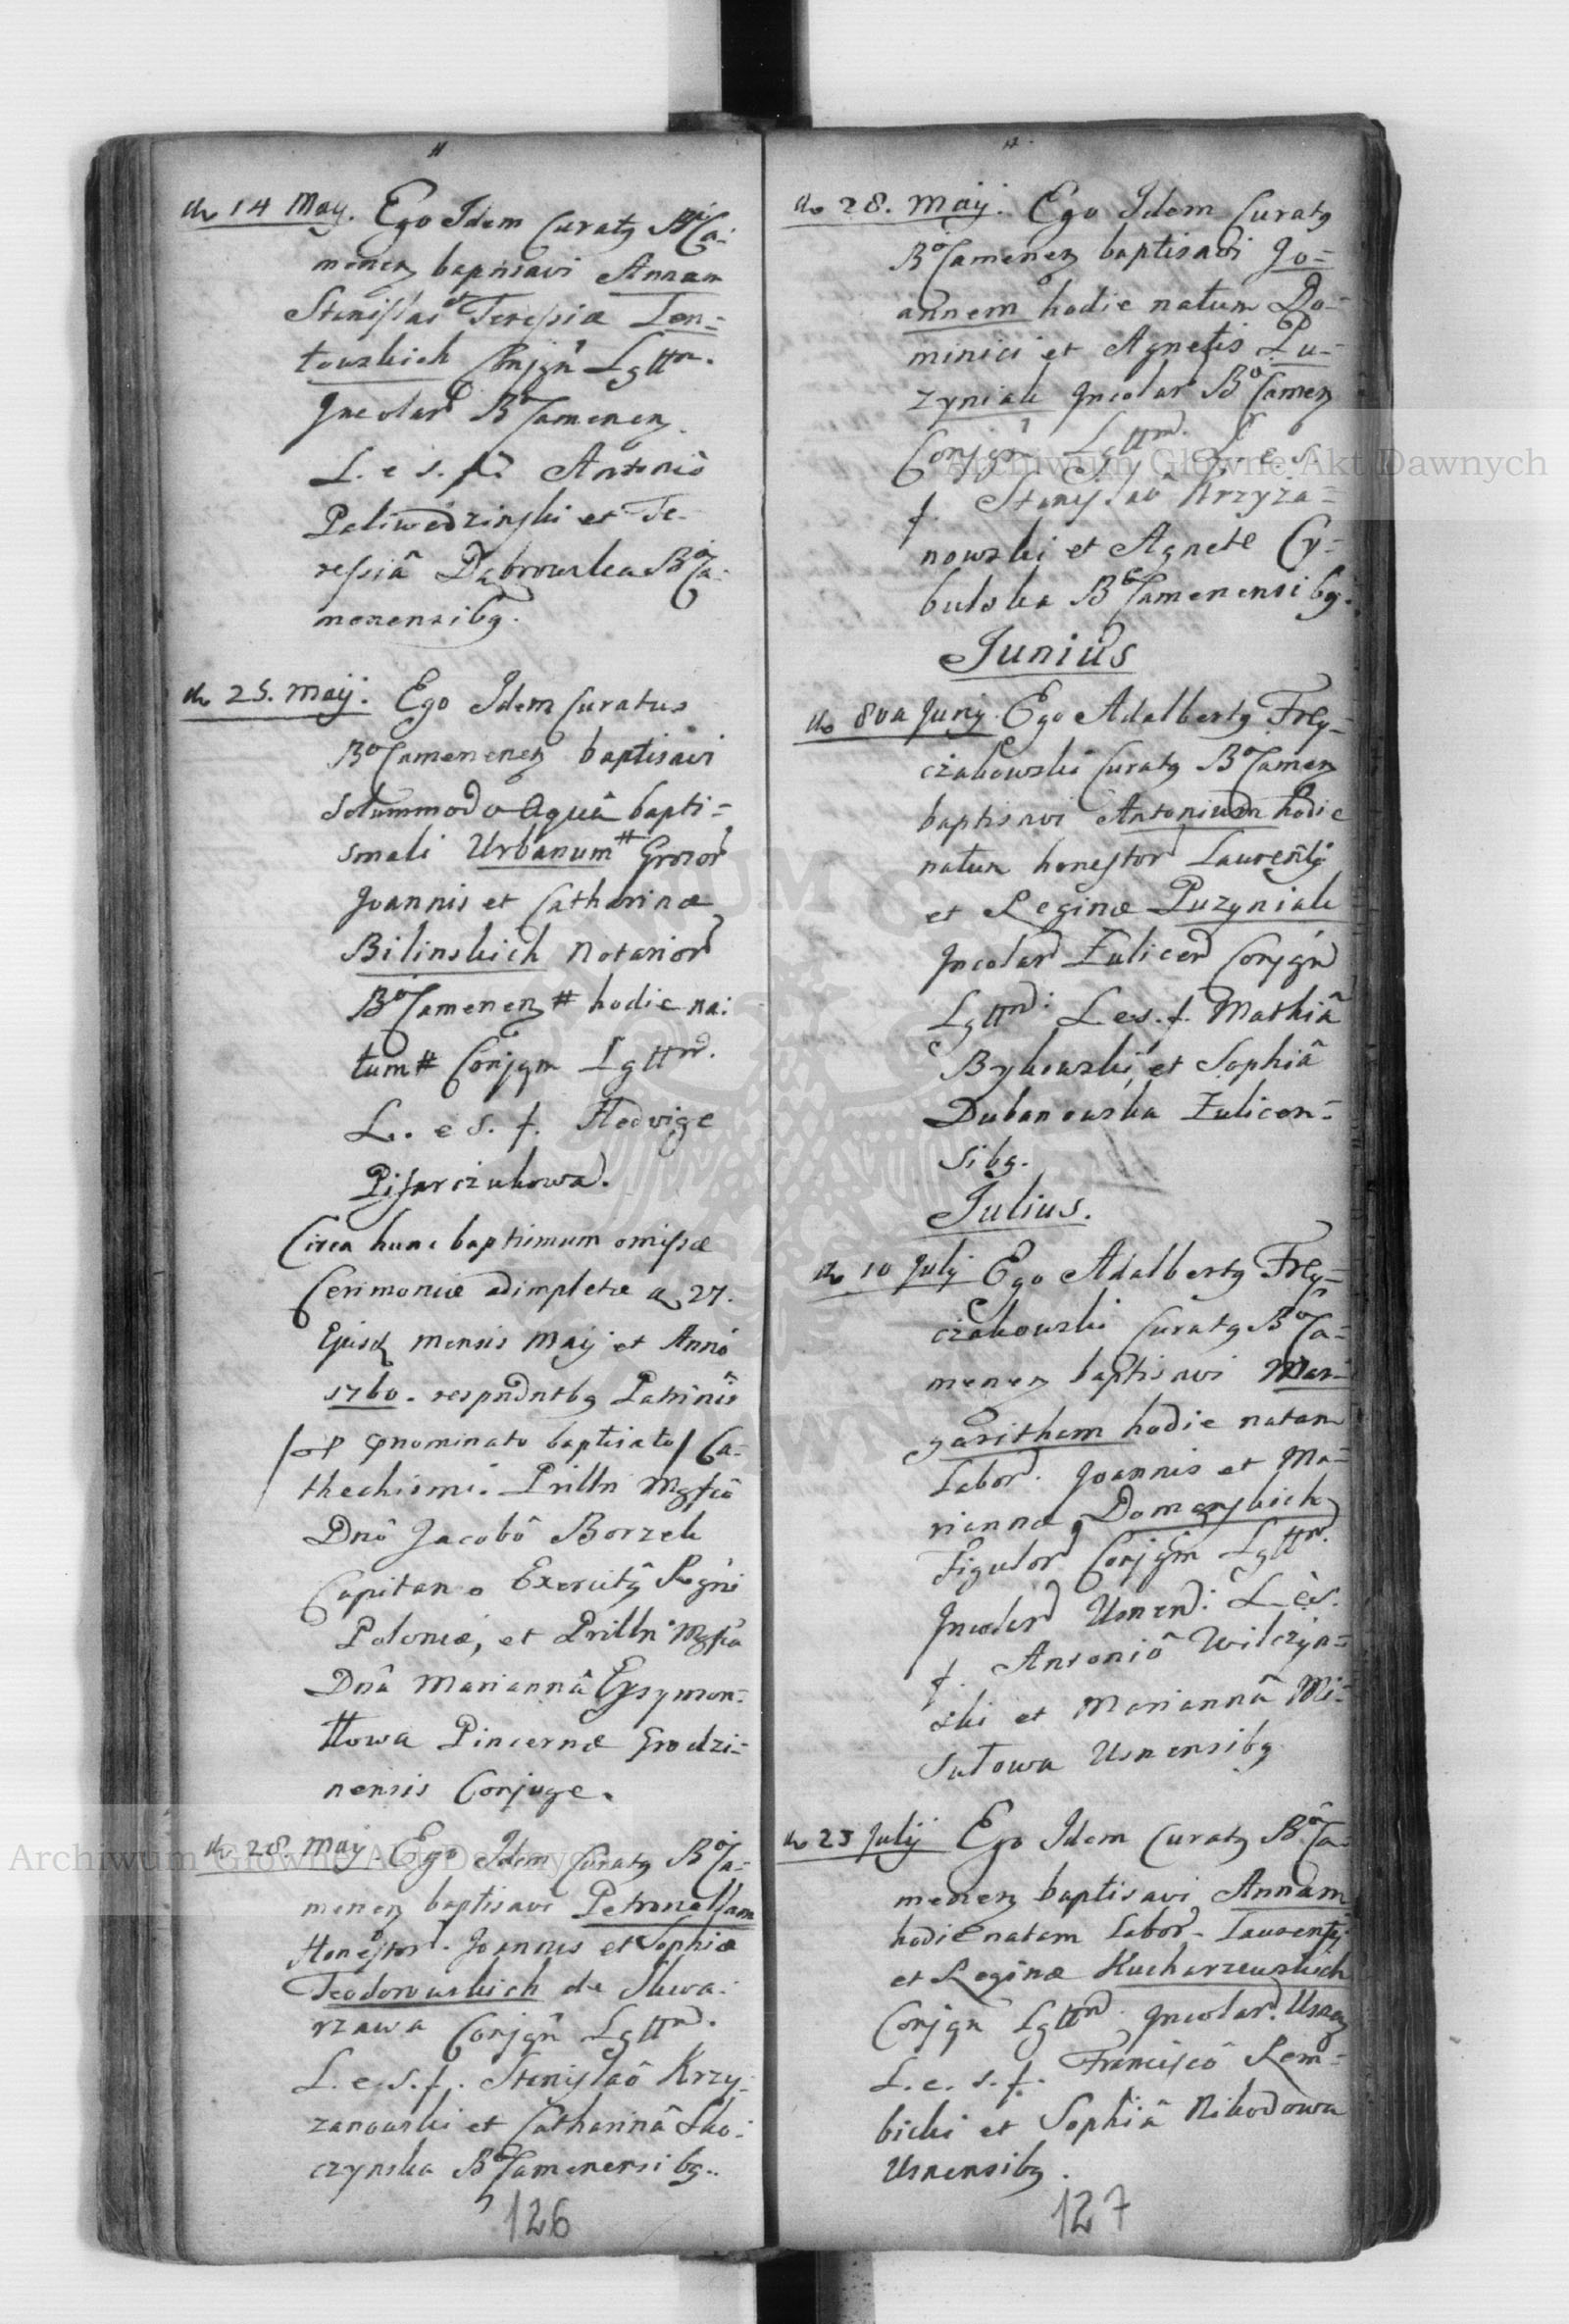 14 May. Ego Idem Curatg Ca-
menen baptisavi Annam
Stanislai et Teressiæ Ton-
towskich Conjgn Lgttm.
Incolar Bo Camenen
L. e s. f. Antoniô
et Te-
ressiâ Dąbrowska Bo Ca-
menensibg.
25. Maij. Ego Idem Curatus
Bo Camenen baptisavi
solummodo Aquâ bapti-
smali Urbanum # Grosor
Joannis et Catharinæ
Bilinskich Notarior
Bo Camenen # hodie na:
tum # Conjgm Lgttm.
L. e s. f. Hedvige
Pisarczukowa.
Circa hunc baptismum omissæ
Cerimoniæ adimpletæ 27.
Ejusd mensis Maij et Annô
1760. respndntbg Patrinis
nominato baptisato / Ca-
thechismi. Prilln Mgfcô
Dnô Jacobô Borzek
Capitaneo Exercitg Regni
Poloniæ, et Prilln Mgfcâ
Dnâ Mariannâ Gzymon-
ttowa Pincernæ Grodzi-
nensis Conjuge.
28. Maij Ego Idem Curatg Bo Ca-
menen baptisavi Petronellam
Honestor. Joannis et Sophiæ
Teodorowskich de Skwa-
rzawa Conjgn Lgttm.
L. e s. f. Stanislaô Krzy-
zanowski et Catharinâ Sko-
czynska Bo Camenensibg.
126
28. Maij. Ego Idem Curatg
Bo Camenen baptisavi Jo-
annem hodie natum Do-
minici et Agnetis Pu-
zyniak Incolar Bo Camen
Conjgn Lgttm. L. e s.
f. Stanislaô Krzyża-
nowski et Agnete Cy-
bulska Bo Camenensibg.
Junius
80a Junij. Ego Adalbertg Frey-
czakowski Curatg Bo Camen
baptisavi Antonium hodie
natum honestor Laurentij
et Reginæ Puzyniak
Incolar Żulicen Conjgn
Lgttm: L. e s. f. Mathiâ
Bykowski et Sophiâ
Dubanowska Żulicen-
sibg.
Julius.
10 Julij Ego Adalbertg Frey-
czakowski Curatg Bo Ca-
menen baptisavi Mar-
garitham hodie natam
Labor. Joannis et Ma-
riannæ
Figulor Conjgm Lgttm.
Incolar Usnen: L. e s.
f. Antoniô Wilczyn-
ski et Mariannâ Mi-
sutowa Usnensibg
23 Julij Ego Idem Curatg Bo Ca-
menen baptisavi Annam
hodie natam Labor. Laurentij
et Reginæ Kucharzewskich
Conjgn Lgttm. Incolar. Usnen
L. e. s. f. Franciscô Rem-
bicki et Sophiâ Nikodowa
Usnensibg.
127
Archiwum Główne Akt Dawnych
Archiwum Główne Akt Dawnych